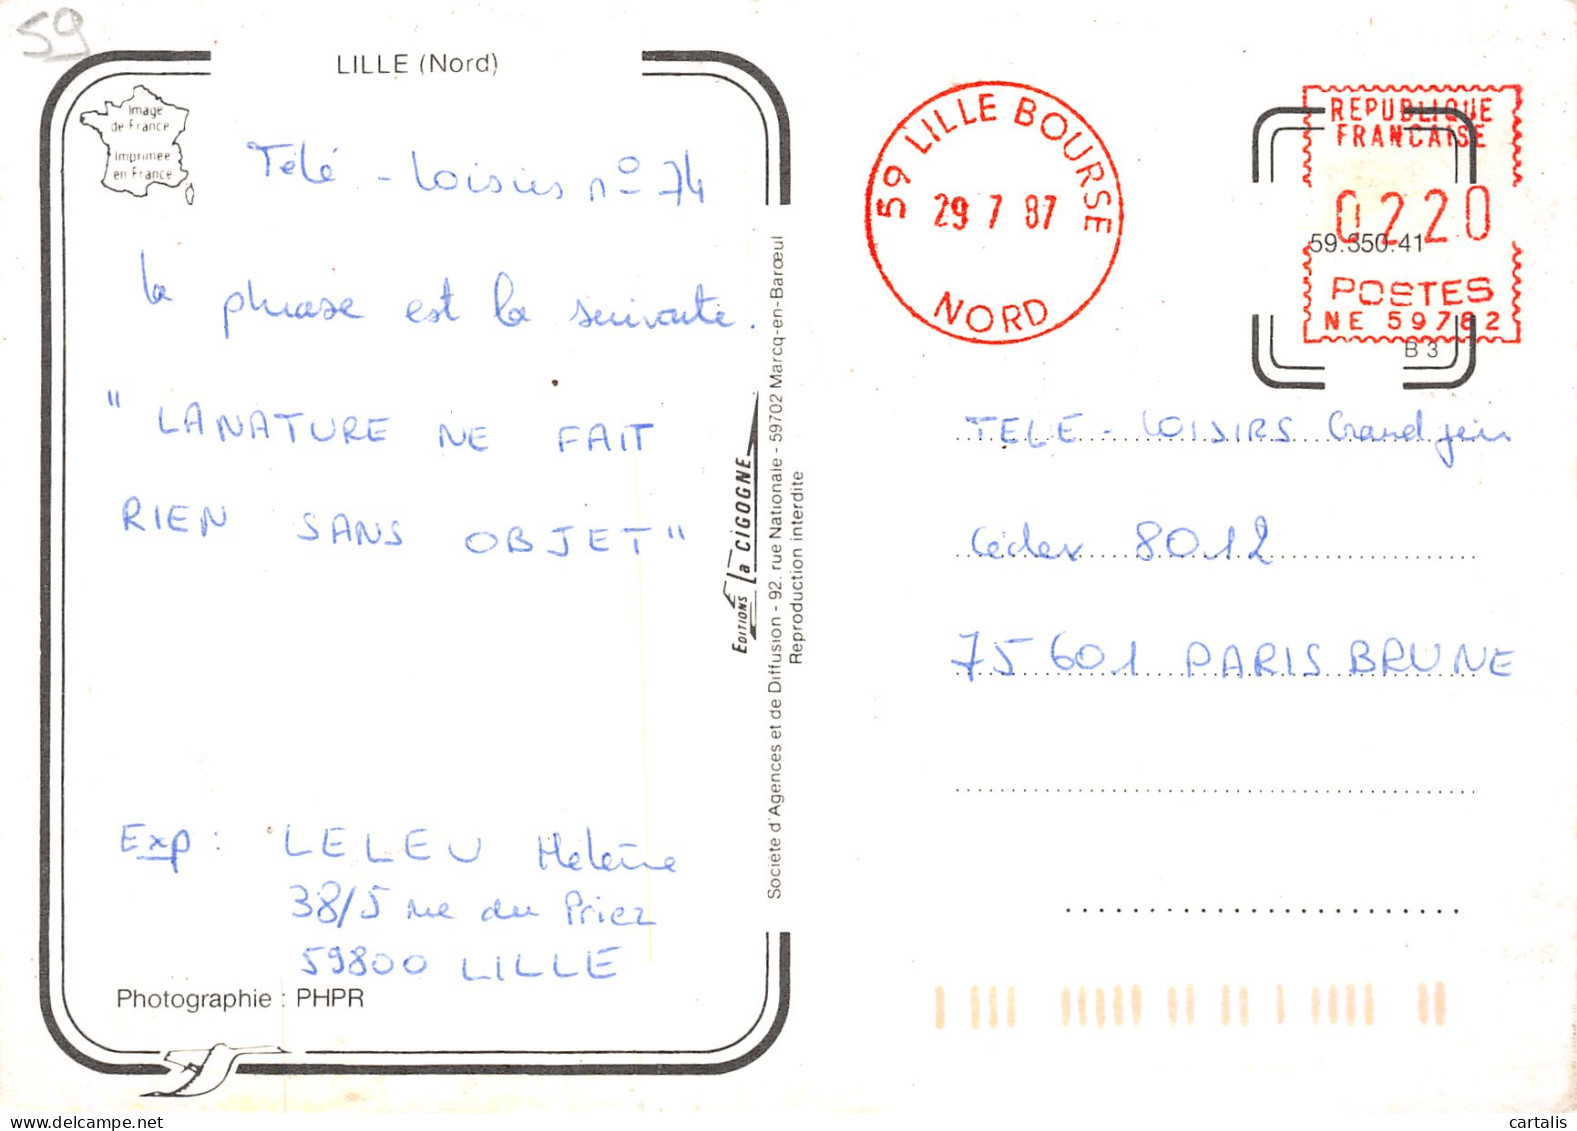 59
LILLE (Nord)
Image
de France
Imprimée
en France
Télé - Loisirs n° 74
la phrase est la suivante.
" LANATURE NE FAIT
RIEN SANS OBJET"
Exp : LELEU Hélène
38/5 rue du Priez
59800 LILLE
Photographie : PHPR
EDITIONS La CIGOGNE
Société d'Agences et de Diffusion - 92. rue Nationale - 59702 Marcq-en-Barœul
Reproduction interdite
59 LILLE BOURSE
29 7 87
NORD
REPUBLIQUE
FRANCAISE
0220
59.350.41
POSTES
NE 59782
B 3
TELE - LOISIRS Grand jeu
Cédex 8012
75 601 PARIS BRUNE
© cartalis
www.delcampe.net